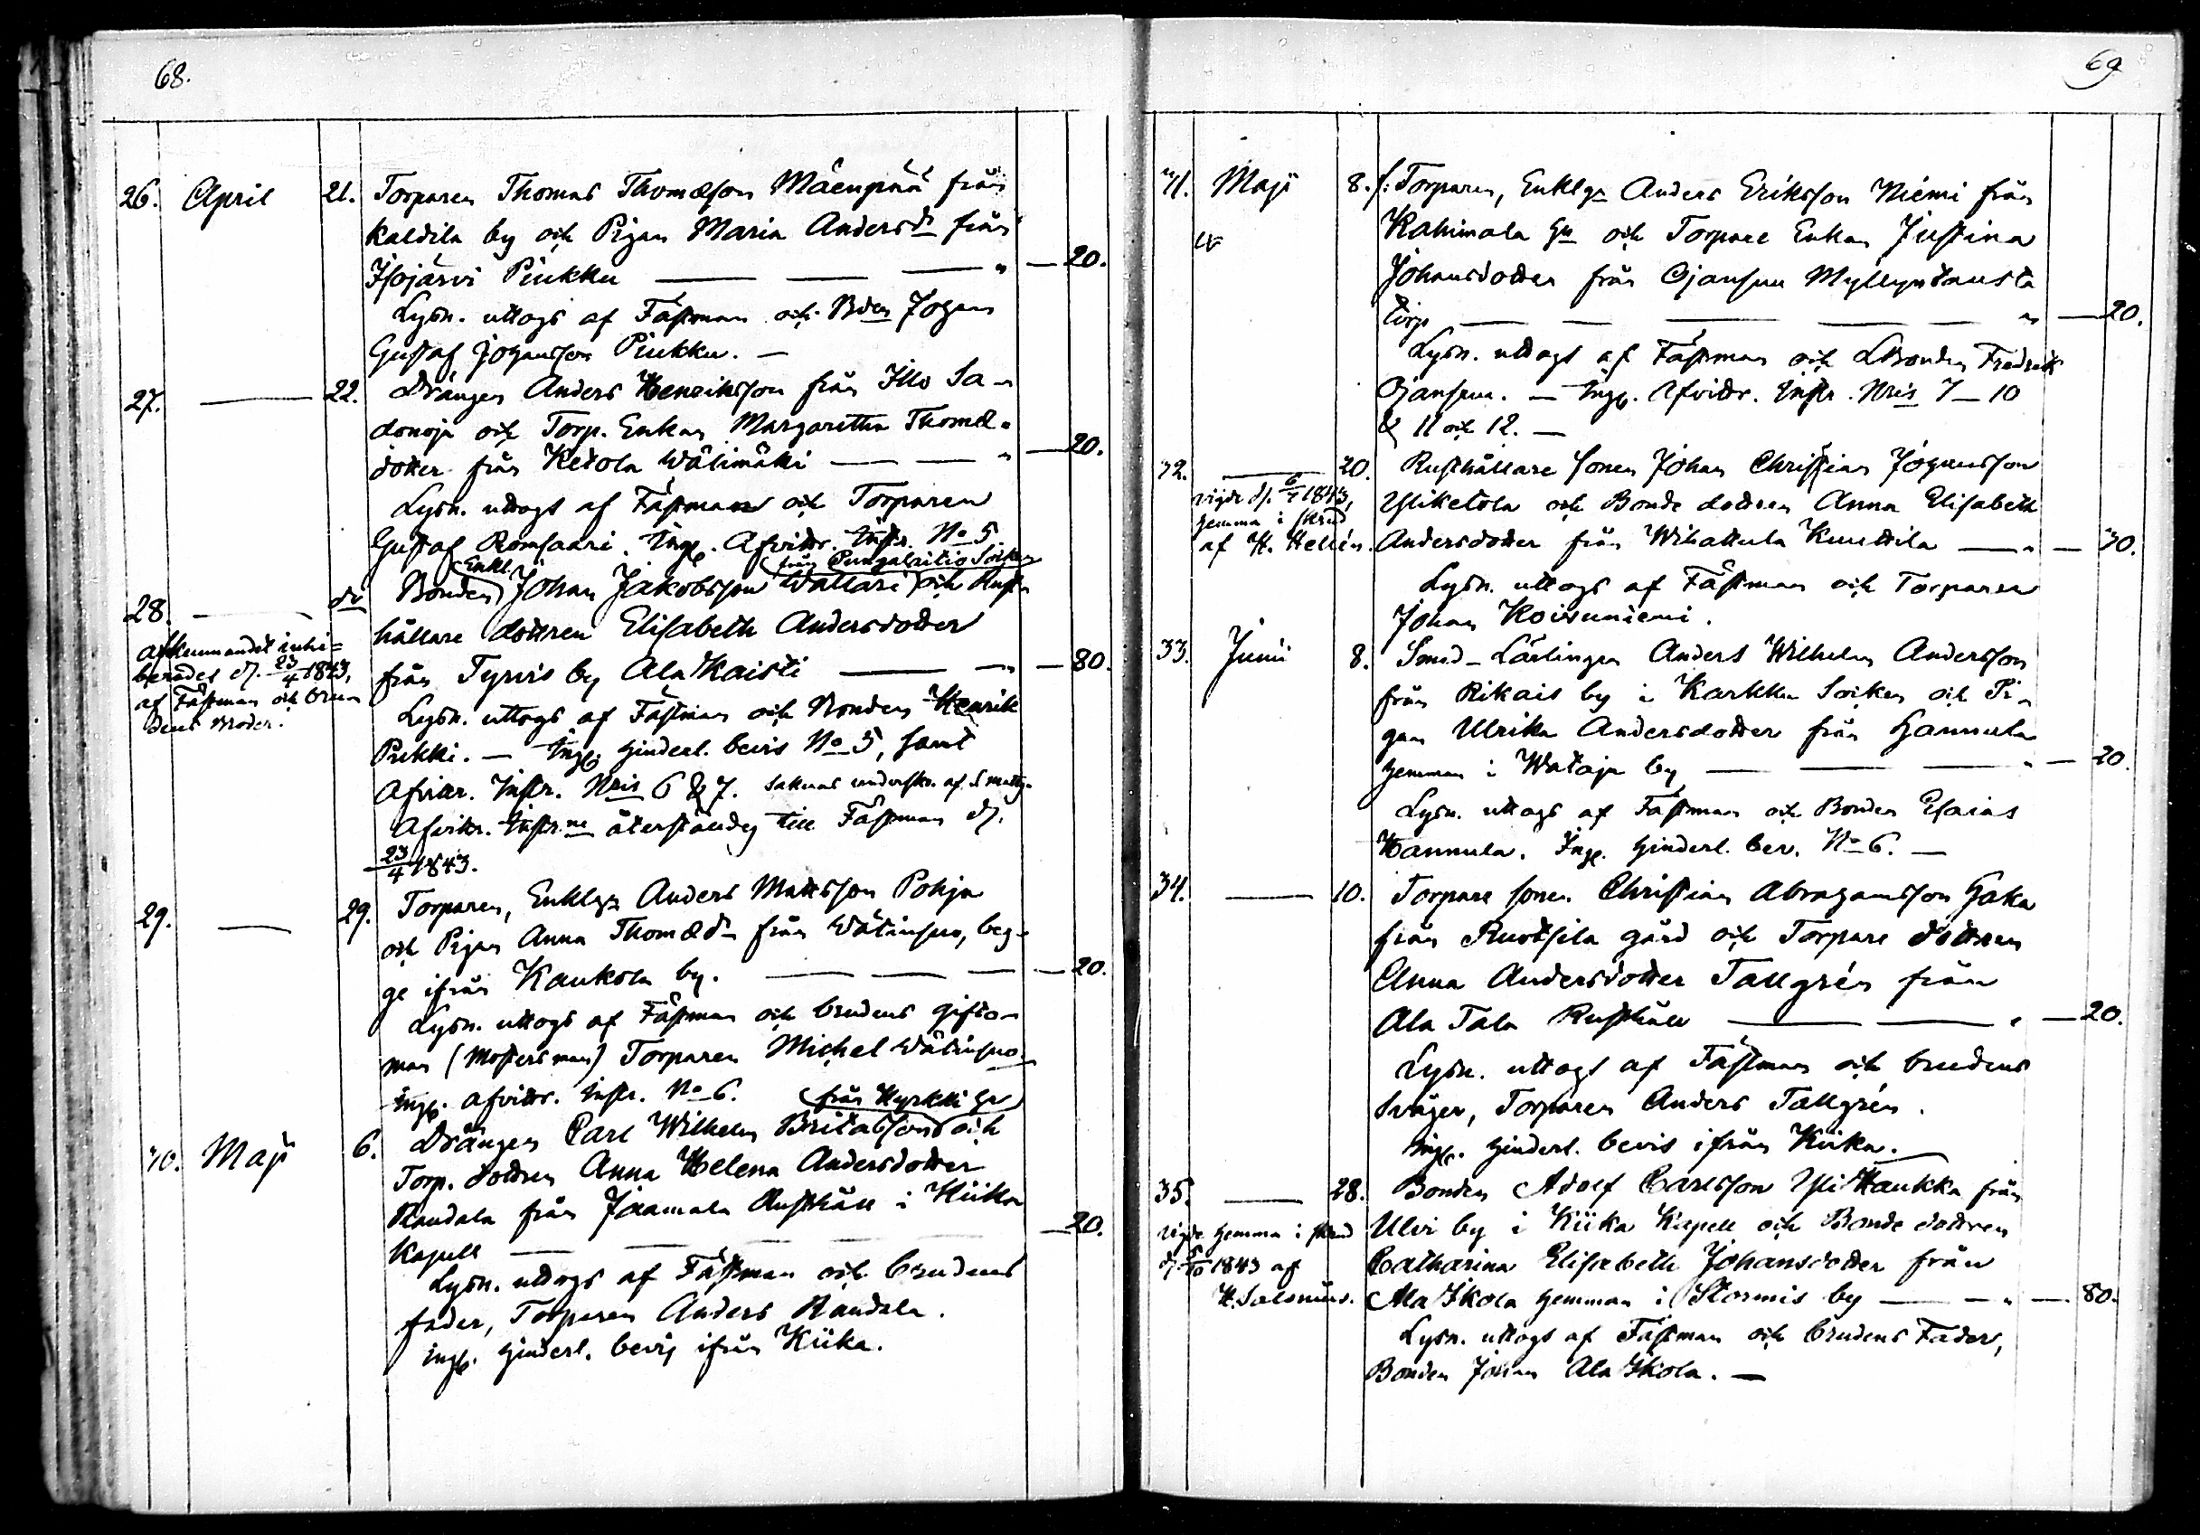 68.
26. April 21. Torparen Thomas Thomæson Mäenpää från
Kaldila by och Pigan Maria Andersdr från
Isojärvi Piukku — — — " — 20.
Lysn. uttogs af Fästman och Bden Johan
Gustaf Johansson Piukku. —
27. — 22. Drängen Anders Henriksson från Illo Sa-
donoja och Torp. Enkan Margaretha Thomæ-
dotter från Ketola Wälimäki — — " — 20.
Lysn. uttogs af Fästman och Torparen
Gustaf Romsaari. Ingl. Afvittr. Instr. No 5.
Enkl. från Pungalaitio Socken
28. — do Bonden Johan Jakobsson Wallari och Rust-
hållare dottren Elisabeth Andersdotter
från Tyrvis by Ala Kaisti — — " — 80.
afkunnandet inhi-
berades d. 23/4 1843,
af Fästman och bru-
dens Broder.
Lysn. uttogs af Fästman och Bonden Henrik
Pukki. — Ingl. Hinderl. bevis No 5, samt
Afvittr. Instr. Nris 6 & 7. saknas underskr. af
Afvittr. Instr.ne återstäldes till Fästman d.
23/4 1843.
29. — 29. Torparen, Enklgn Anders Mattsson Pohja
och Pigan Anna Thomædr från Wätinsuo, beg-
ge ifrån Kaukola by. — — — — 20.
Lysn. uttogs af Fästman och brudens gifto-
man (Mosters man) Torparen Michel Wätinsuo
Ingl. afvittr. Instr. No 6.
från Hyrkki gd
30. Maji 6. Drängen Carl Wilhelm Britasson och
Torp. dottren Anna Helena Andersdotter
Randala från Jaamala Rusthåll i Kiika
Kapell — — — — 20.
Lysn. uttogs af Fästman och brudens
fader, Torparen Anders Randala.
Ingl. Hinderl. bevis ifrån Kiika.
69
31. Maji 8. Torparen, Enklgn Anders Eriksson Niemi från
Kahimala Gd och Torpare Enkan Justina
Johansdotter från Ojansuu Myllyntausta
Torp — — — — — " — 20.
Lysn. uttogs af Fästman och LBonden Fredrik
Ojansuu. — Ingl. Afvittr. Instr. Nris 7—10
& 11 och 12. —
32. — 20. Rusthållare sonen Johan Christian Johansson
Yliketola och Bonde dottren Anna Elisabeth
Andersdotter från Wihattula Knuttila — " — 30.
vigde d. 6/7 1843,
hemma i skrud
af H. Hellén.
Lysn. uttogs af Fästman och Torparen
Johan Koivuniemi.
33. Junii 8. Smed-Lärlingen Anders Wilhelm Andersson
från Rikais by i Karkku Socken och Pi-
gan Ulrika Andersdotter från Hannula
hemman i Wataja by — — — " — 20.
Lysn. uttogs af Fästman och Bonden Esaias
Hannula. Ingl. Hinderl. bev. No 6. —
34. — 10. Torpare sonen Christian Abrahamsson Haka
från Ruotsila gård och Torpare dottren
Anna Andersdotter Tallgrén från
Ala Tala Rusthåll — — " — 20.
Lysn. uttogs af Fästman och brudens
Svåger, Torparen Anders Tallgrén.
Ingl. Hinderl. bevis ifrån Kiika.
35. — 28. Bonden Adolf Carlsson Yli Haukka från
Ulvi by i Kiika Kapell och Bonde dottren
Catharina Elisabeth Johansdotter från
Ala Skola hemman i Stormis by — — " — 80.
Vigde hemma i skrud
1843 af
H. Salonius.
Lysn. uttogs af Fästman och brudens Fader,
Bonden Johan Ala Skola. —